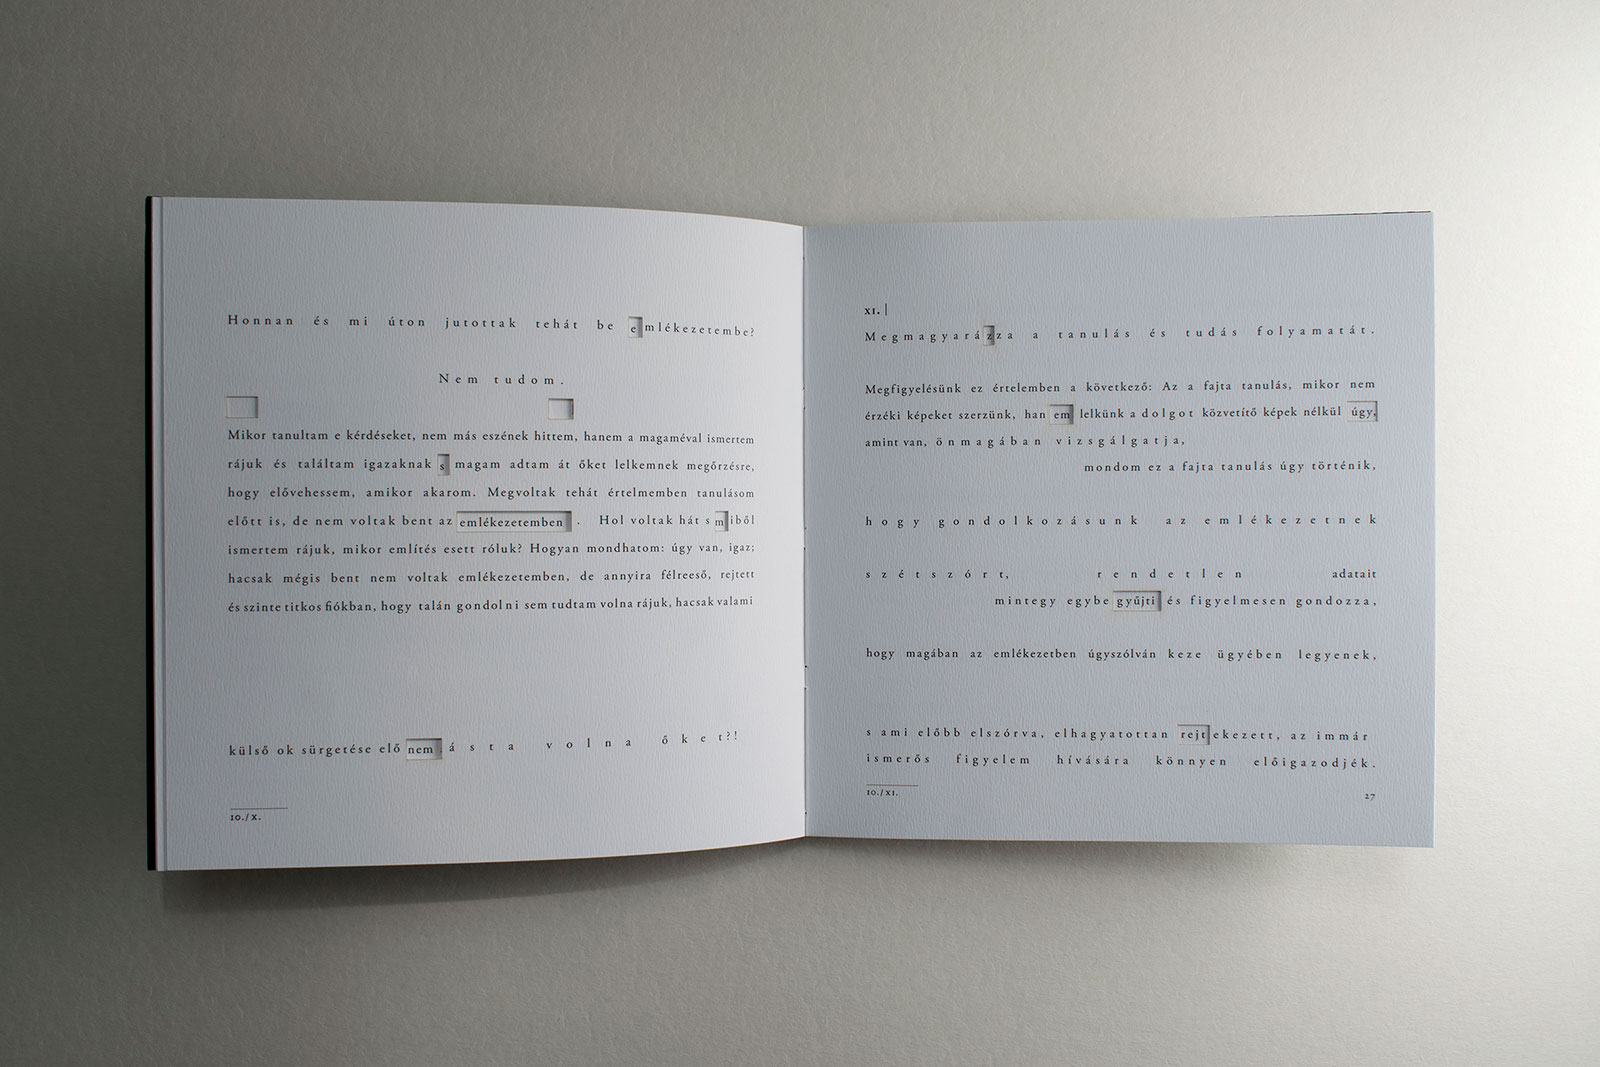 Honnan és mi úton jutottak tehát be emlékezetembe?
Nem tudom.
Mikor tanultam e kérdéseket, nem más eszének hittem, hanem a magaméval ismertem
rájuk és találtam igazaknak s magam adtam át őket lelkemnek megőrzésre,
hogy elővehessem, amikor akarom. Megvoltak tehát értelmemben tanulásom
előtt is, de nem voltak bent az emlékezetemben. Hol voltak hát s miből
ismertem rájuk, mikor említés esett róluk? Hogyan mondhatom: úgy van, igaz;
hacsak mégis bent nem voltak emlékezetemben, de annyira félreeső, rejtett
és szinte titkos fiókban, hogy talán gondolni sem tudtam volna rájuk, hacsak valami
külső ok sürgetése elő nem ásta volna őket?!
10./X.
XI. |
Megmagyarázza a tanulás és tudás folyamatát.
Megfigyelésünk ez értelemben a következő: Az a fajta tanulás, mikor nem
érzéki képeket szerzünk, hanem lelkünk a dolgot közvetítő képek nélkül úgy,
amint van, önmagában vizsgálgatja,
mondom ez a fajta tanulás úgy történik,
hogy gondolkozásunk az emlékezetnek
szétszórt, rendetlen adatait
mintegy egybegyűjti és figyelmesen gondozza,
hogy magában az emlékezetben úgyszólván keze ügyében legyenek,
s ami előbb elszórva, elhagyatottan rejtekezett, az immár
ismerős figyelem hívására könnyen előigazodjék.
10./XI.
27